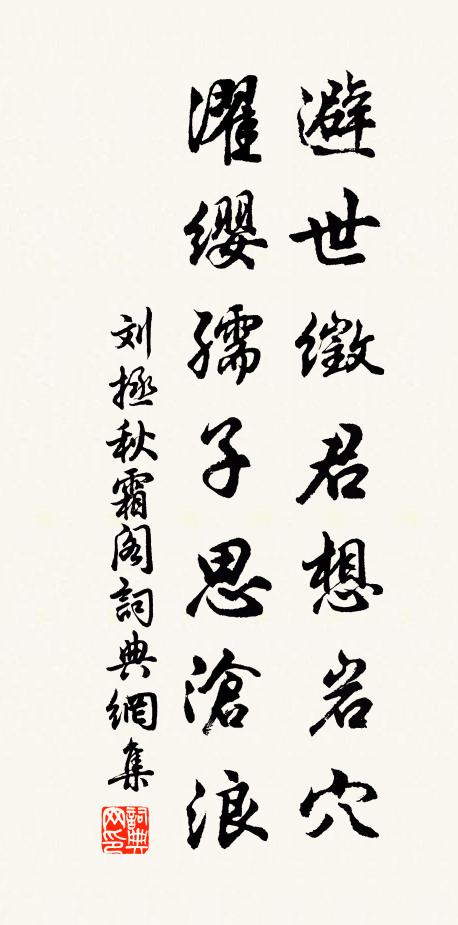 避世徵君想岩穴
濯缨孺子思滄浪
刘拯秋霜阁詞典網集
詞典网印